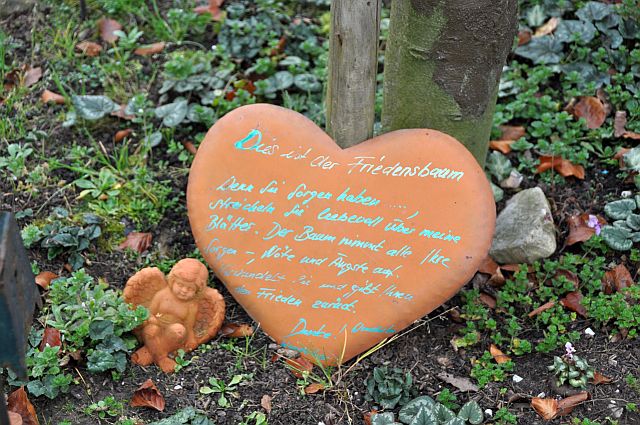 Dies ist der Friedensbaum
Wenn Sie Sorgen haben ....,
streicheln Sie liebevoll über meine
Blätter. Der Baum nimmt alle Ihre
Sorgen, Nöte und Ängste auf,
verwandelt sie und gibt Ihnen
den Frieden zurück.
Danke!